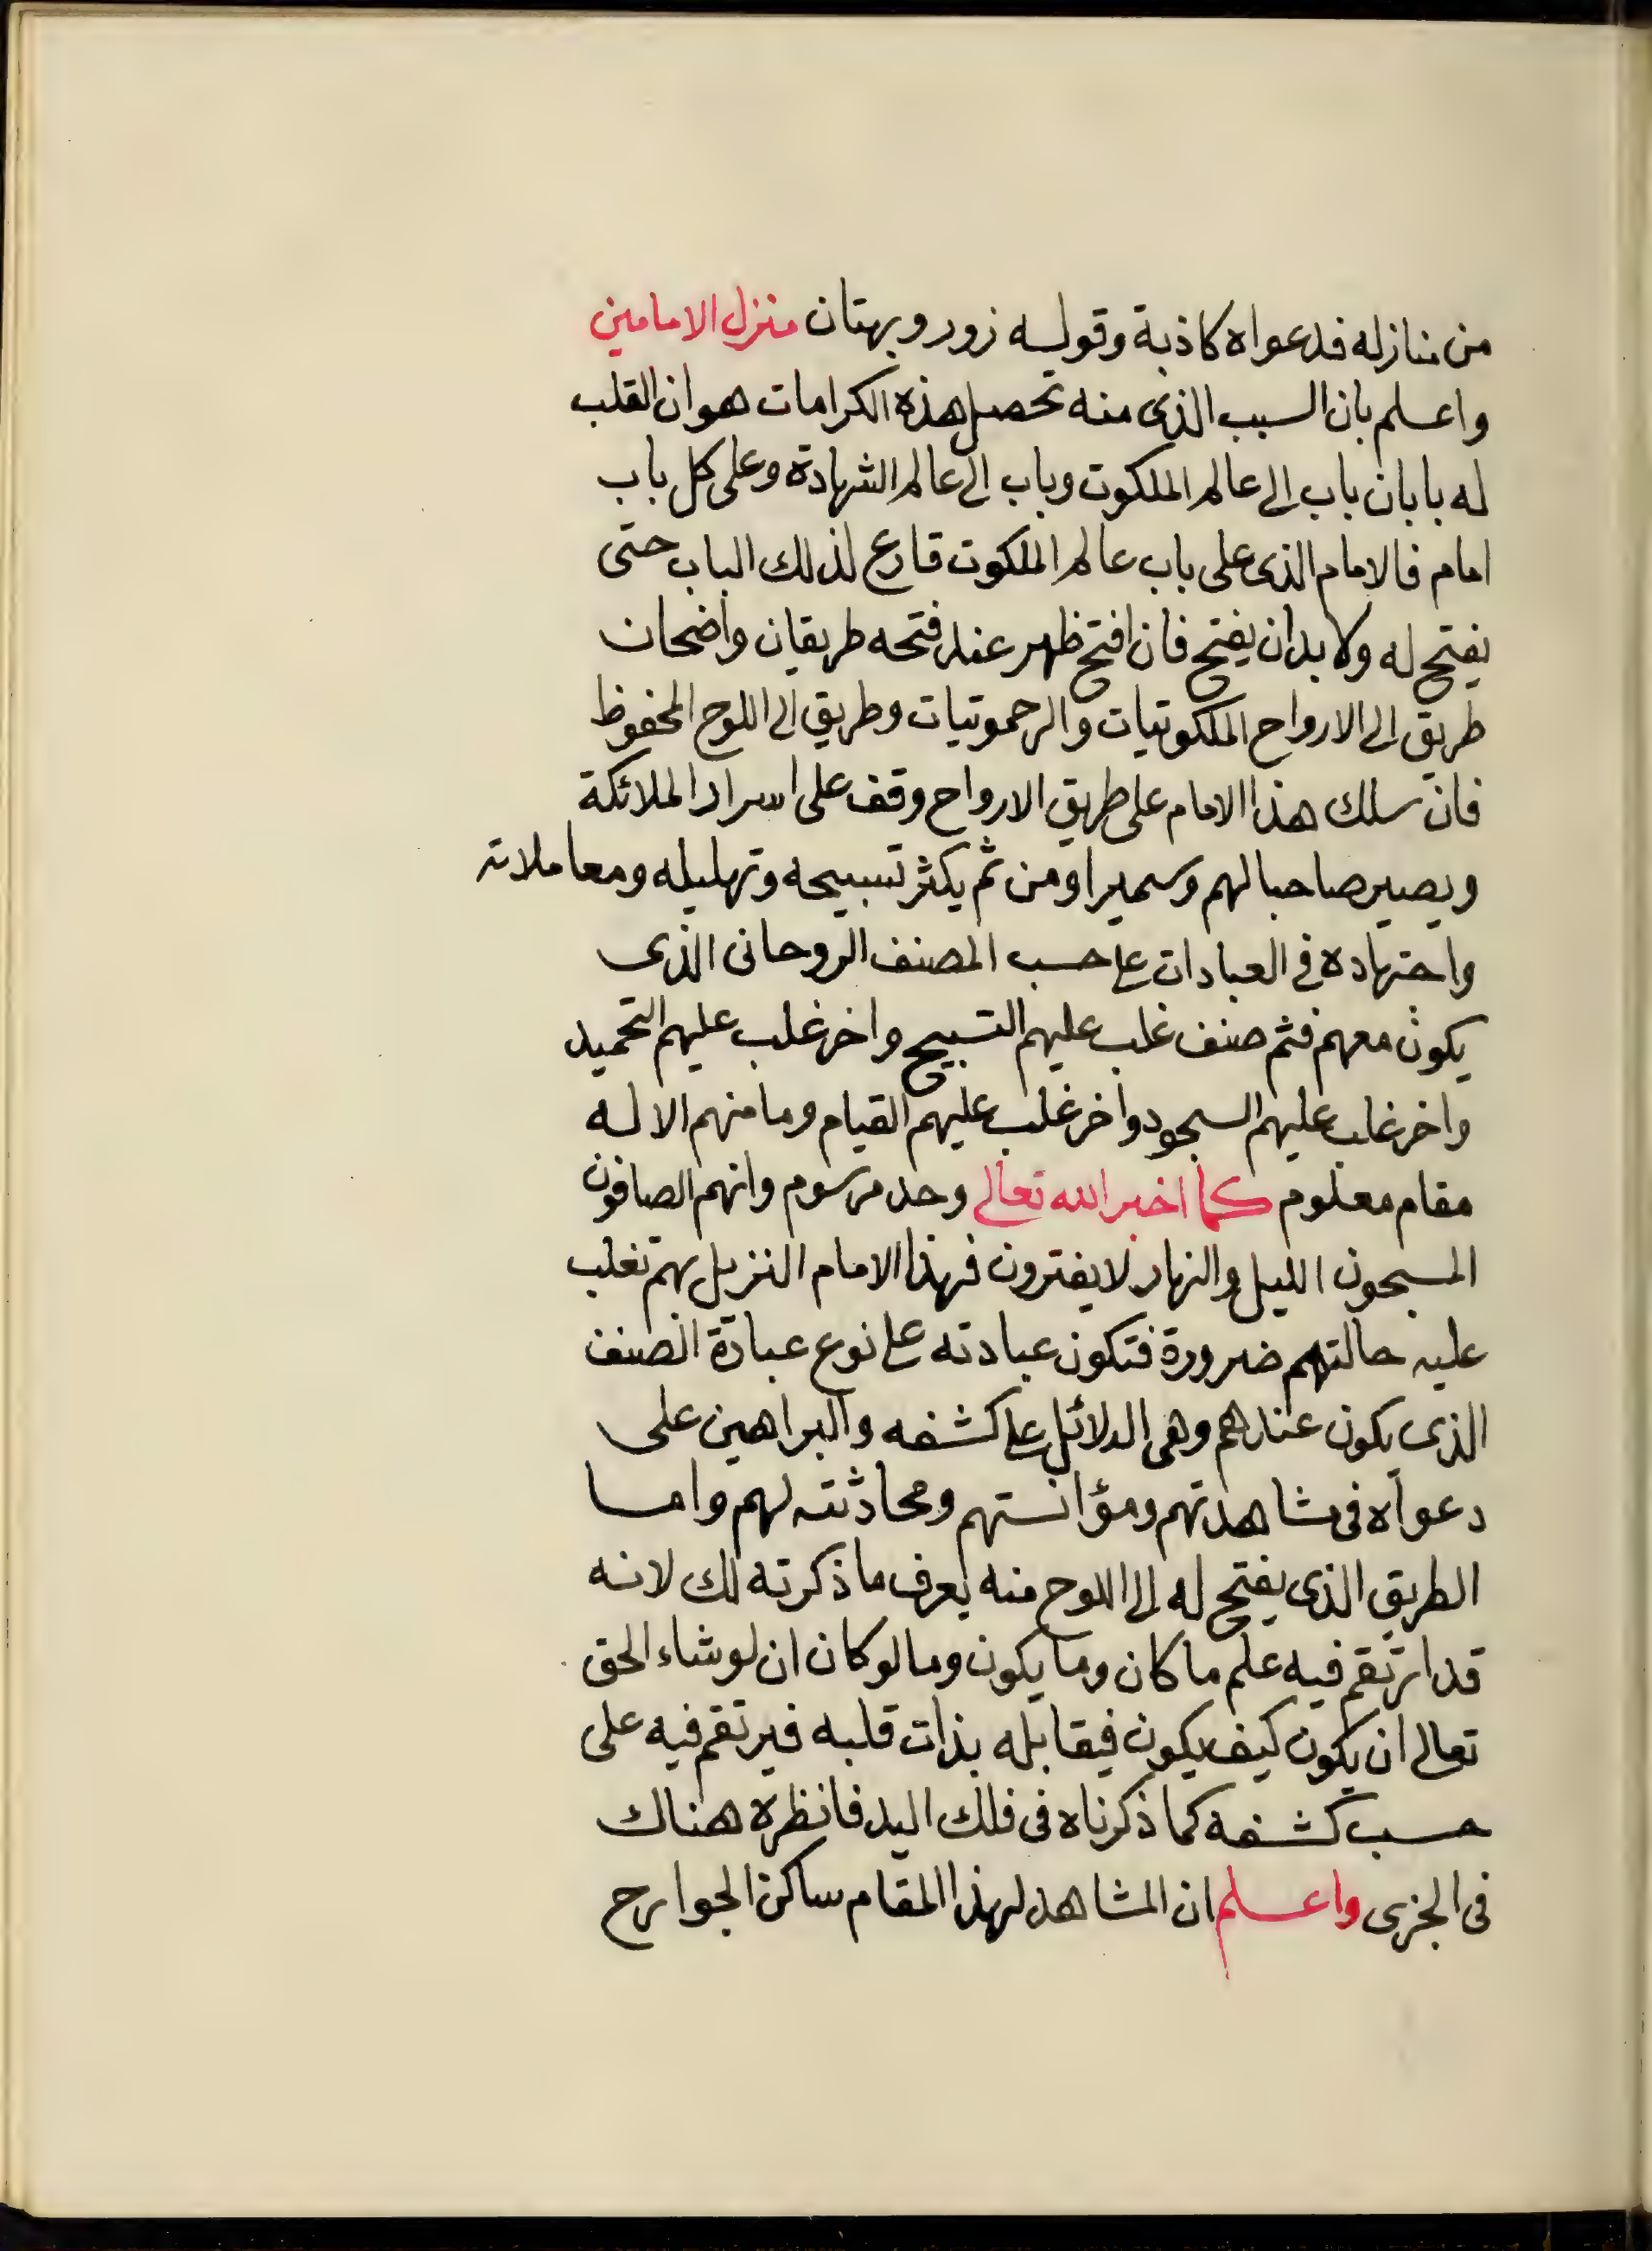 من منازله فدعواه كاذبة وقوله زور وبهتان منزل الامامين
واعلم بان السبب الذى منه تحصل هذه الكرامات هو ان القلب
له بابان باب الى عالم الملكوت وباب الى عالم الشهادة وعلى كل باب
امام فالامام الذى على باب عالم الملكوت قارع لذلك الباب حتى
يفتح له ولا بد ان يفتح فان افتح ظهر عند فتحه طريقان واضحان
طريق الى الارواح الملكوتيات والرحموتيات وطريق الى اللوح المحفوظ
فان سلك هذا الامام على طريق الارواح وقف على اسرار الملائكة
ويصير صاحبا لهم وسميرا ومن ثم يكثر تسبيحه وتهليله ومعاملاته
واجتهاده فى العبادات على حسب المصنف الروحانى الذى
يكون معهم فثم صنف غلب عليهم التسبيح واخر غلب عليهم التحميد
واخر غلب عليهم السجود واخر غلب عليهم القيام وما منهم الا له
مقام معلوم كما اخبر الله تعالى وحد مرسوم وانهم الصافون
المسبحون الليل والنهار لا يفترون فهذا الامام النزيل بهم تغلب
عليه حالتهم ضرورة فتكون عبادته على نوع عبادة الصنف
الذى يكون عندهم وهى الدلائل على كشفه والبراهين على
دعواه فى مشاهدتهم ومؤانستهم ومحادثته لهم واما
الطريق الذى يفتح له الى اللوح منه يعرف ما ذكرته لك لانه
قد ارتقم فيه علم ما كان وما يكون وما لو كان ان لو شاء الحق
تعالى ان يكون كيف يكون فيقابله بذات قلبه فيرتقم فيه على
حسب كشفه كما ذكرناه فى فلك اليد فانظره هناك
فى الجزى واعلم ان المشاهد لهذا المقام ساكن الجوارح